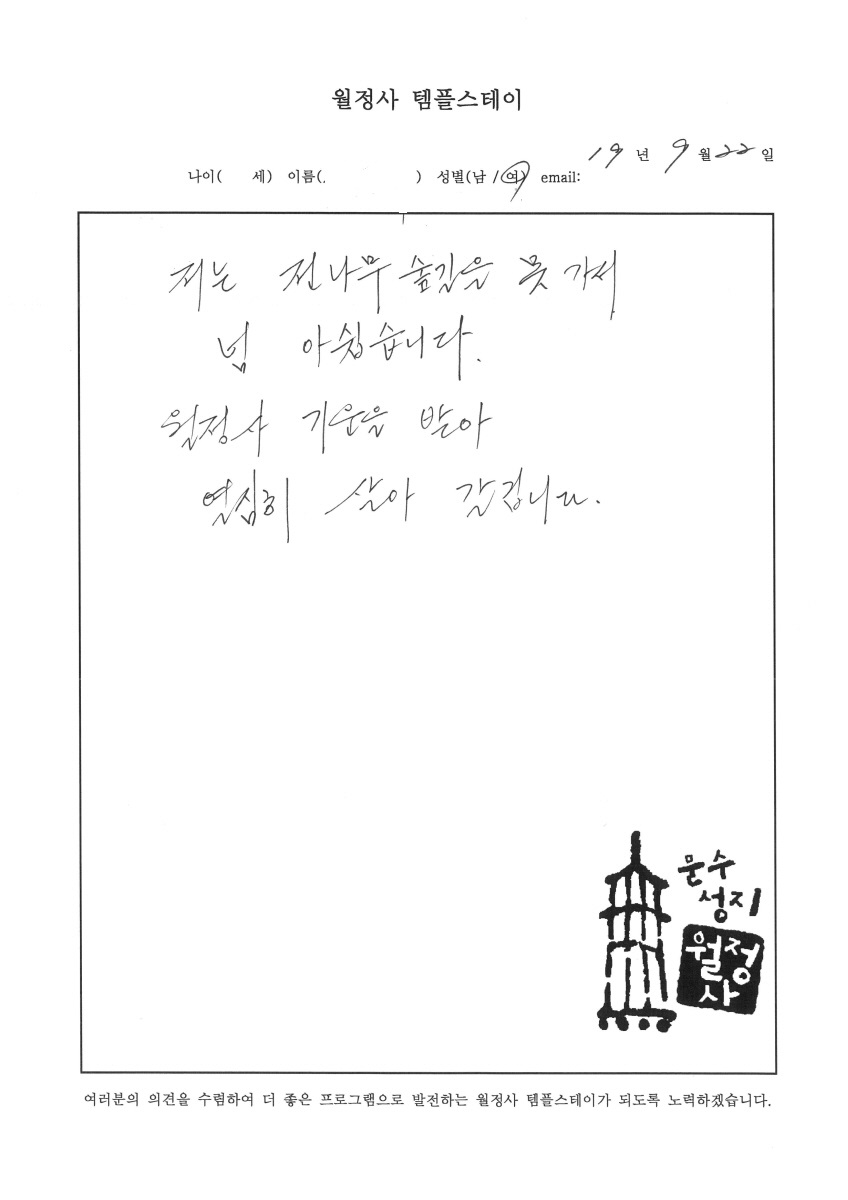 월정사 템플스테이
19 년 9 월 22 일
나이( 세) 이름( ) 성별(남 / 여) email:
저는 전나무 숲길을 못 가서
넘 아쉽습니다.
월정사 기운을 받아
열심히 살아 갈겁니다.
문수
성지
월정
사
여러분의 의견을 수렴하여 더 좋은 프로그램으로 발전하는 월정사 템플스테이가 되도록 노력하겠습니다.